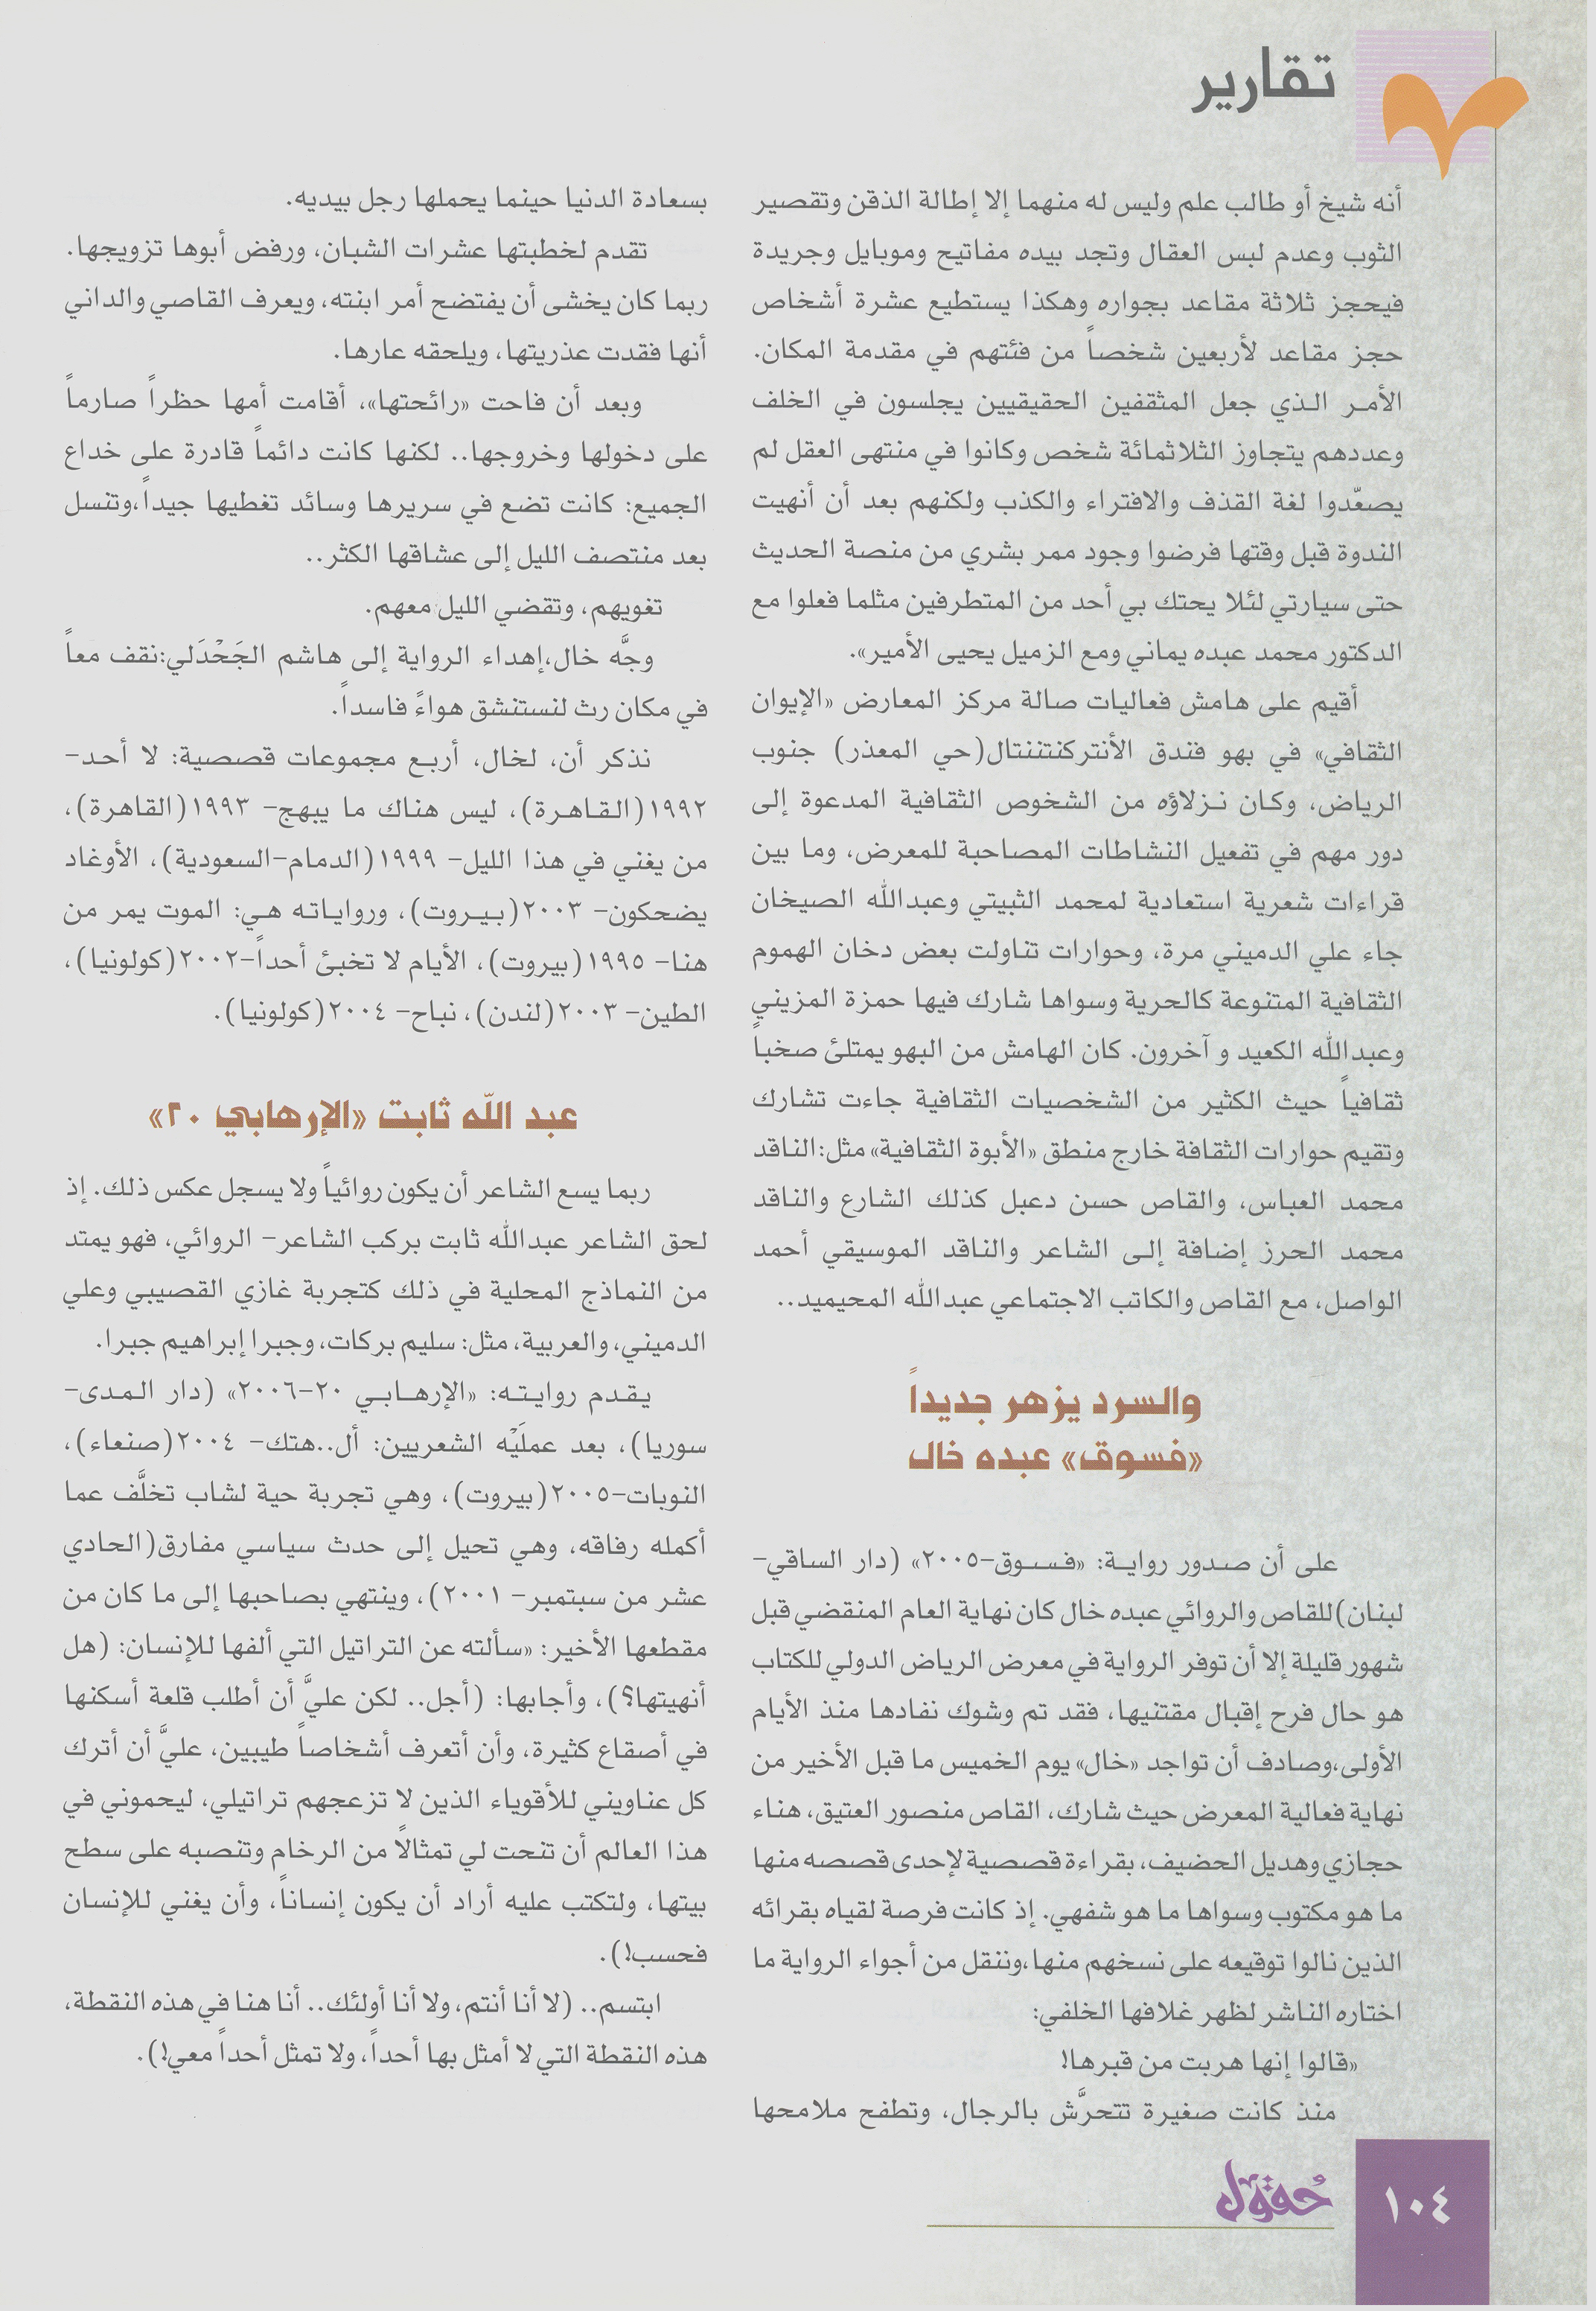 تقارير
أنه شيخ أو طالب علم وليس له منهما إلا إطالة الذقن وتقصير
الثوب وعدم لبس العقال وتجد بيده مفاتيح وموبايل وجريدة
فيحجز ثلاثة مقاعد بجواره وهكذا يستطيع عشرة أشخاص
حجز مقاعد لأربعين شخصاً من فئتهم في مقدمة المكان.
الأمر الذي جعل المثقفين الحقيقيين يجلسون في الخلف
وعددهم يتجاوز الثلاثمائة شخص وكانوا في منتهى العقل لم
يصعّدوا لغة القذف والافتراء والكذب ولكنهم بعد أن أنهيت
الندوة قبل وقتها فرضوا وجود ممر بشري من منصة الحديث
حتى سيارتي لئلا يحتك بي أحد من المتطرفين مثلما فعلوا مع
الدكتور محمد عبده يماني ومع الزميل يحيى الأمير».
أقيم على هامش فعاليات صالة مركز المعارض «الإيوان
الثقافي» في بهو فندق الأنتركنتننتال(حي المعذر) جنوب
الرياض، وكان نزلاؤه من الشخوص الثقافية المدعوة إلى
دور مهم في تفعيل النشاطات المصاحبة للمعرض، وما بين
قراءات شعرية استعادية لمحمد الثبيتي وعبدالله الصيخان
جاء علي الدميني مرة، وحوارات تناولت بعض دخان الهموم
الثقافية المتنوعة كالحرية وسواها شارك فيها حمزة المزيني
وعبدالله الكعيد و آخرون. كان الهامش من البهو يمتلئ صخباً
ثقافياً حيث الكثير من الشخصيات الثقافية جاءت تشارك
وتقيم حوارات الثقافة خارج منطق «الأبوة الثقافية» مثل:الناقد
محمد العباس، والقاص حسن دعبل كذلك الشارع والناقد
محمد الحرز إضافة إلى الشاعر والناقد الموسيقي أحمد
الواصل، مع القاص والكاتب الاجتماعي عبدالله المحيميد..
والسرد يزهر جديداً
«فسوق» عبده خال
على أن صدور رواية: «فسوق-٢٠٠٥» (دار الساقي-
لبنان)للقاص والروائي عبده خال كان نهاية العام المنقضي قبل
شهور قليلة إلا أن توفر الرواية في معرض الرياض الدولي للكتاب
هو حال فرح إقبال مقتنيها، فقد تم وشوك نفادها منذ الأيام
الأولى،وصادف أن تواجد «خال» يوم الخميس ما قبل الأخير من
نهاية فعالية المعرض حيث شارك، القاص منصور العتيق، هناء
حجازي وهديل الحضيف، بقراءة قصصية لإحدى قصصه منها
ما هو مكتوب وسواها ما هو شفهي. إذ كانت فرصة لقياه بقرائه
الذين نالوا توقيعه على نسخهم منها،وننقل من أجواء الرواية ما
اختاره الناشر لظهر غلافها الخلفي:
«قالوا إنها هربت من قبرها!
منذ كانت صغيرة تتحرَّش بالرجال، وتطفح ملامحها
بسعادة الدنيا حينما يحملها رجل بيديه.
تقدم لخطبتها عشرات الشبان، ورفض أبوها تزويجها.
ربما كان يخشى أن يفتضح أمر ابنته، ويعرف القاصي والداني
أنها فقدت عذريتها، ويلحقه عارها.
وبعد أن فاحت «رائحتها»، أقامت أمها حظراً صارماً
على دخولها وخروجها.. لكنها كانت دائماً قادرة على خداع
الجميع: كانت تضع في سريرها وسائد تغطيها جيداً،وتنسل
بعد منتصف الليل إلى عشاقها الكثر..
تغويهم، وتقضي الليل معهم.
وجَّه خال،إهداء الرواية إلى هاشم الجَحْدَلي:نقف معاً
في مكان رث لنستنشق هواءً فاسداً.
نذكر أن، لخال، أربع مجموعات قصصية: لا أحد-
١٩٩٢(القاهرة)، ليس هناك ما يبهج- ١٩٩٣(القاهرة)،
من يغني في هذا الليل- ١٩٩٩(الدمام-السعودية)، الأوغاد
يضحكون- ٢٠٠٣(بيروت)، ورواياته هي: الموت يمر من
هنا- ١٩٩٥(بيروت)، الأيام لا تخبئ أحداً-٢٠٠٢(كولونيا)،
الطين- ٢٠٠٣(لندن)، نباح- ٢٠٠٤(كولونيا).
عبد الله ثابت «الإرهابي ٢٠»
ربما يسع الشاعر أن يكون روائياً ولا يسجل عكس ذلك. إذ
لحق الشاعر عبدالله ثابت بركب الشاعر- الروائي، فهو يمتد
من النماذج المحلية في ذلك كتجربة غازي القصيبي وعلي
الدميني، والعربية، مثل: سليم بركات، وجبرا إبراهيم جبرا.
يقدم روايته: «الإرهابي ٢٠-٢٠٠٦» (دار المدى-
سوريا)، بعد عملَيْه الشعريين: أل..هتك- ٢٠٠٤(صنعاء)،
النوبات-٢٠٠٥(بيروت)، وهي تجربة حية لشاب تخلَّف عما
أكمله رفاقه، وهي تحيل إلى حدث سياسي مفارق(الحادي
عشر من سبتمبر- ٢٠٠١)، وينتهي بصاحبها إلى ما كان من
مقطعها الأخير: «سألته عن التراتيل التي ألفها للإنسان: (هل
أنهيتها؟)، وأجابها: (أجل.. لكن عليَّ أن أطلب قلعة أسكنها
في أصقاع كثيرة، وأن أتعرف أشخاصاً طيبين، عليَّ أن أترك
كل عناويني للأقوياء الذين لا تزعجهم تراتيلي، ليحموني في
هذا العالم أن تنحت لي تمثالاً من الرخام وتنصبه على سطح
بيتها، ولتكتب عليه أراد أن يكون إنساناً، وأن يغني للإنسان
فحسب!).
ابتسم.. (لا أنا أنتم، ولا أنا أولئك.. أنا هنا في هذه النقطة،
هذه النقطة التي لا أمثل بها أحداً، ولا تمثل أحداً معي!).
حُقول
١٠٤